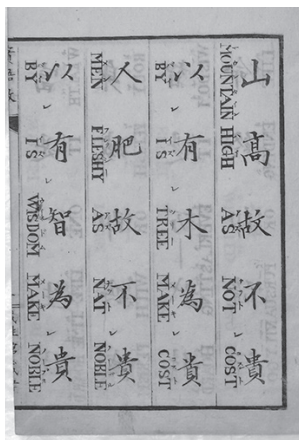 山高故不貴
MOUNTAIN HIGH AS NOT COST
以有木為貴
BY IS TREE MAKE COST
人肥故不貴
MEN FLESHY AS NAT NOBLE
以有智為貴
BY IS WISDOM MAKE NOBLE